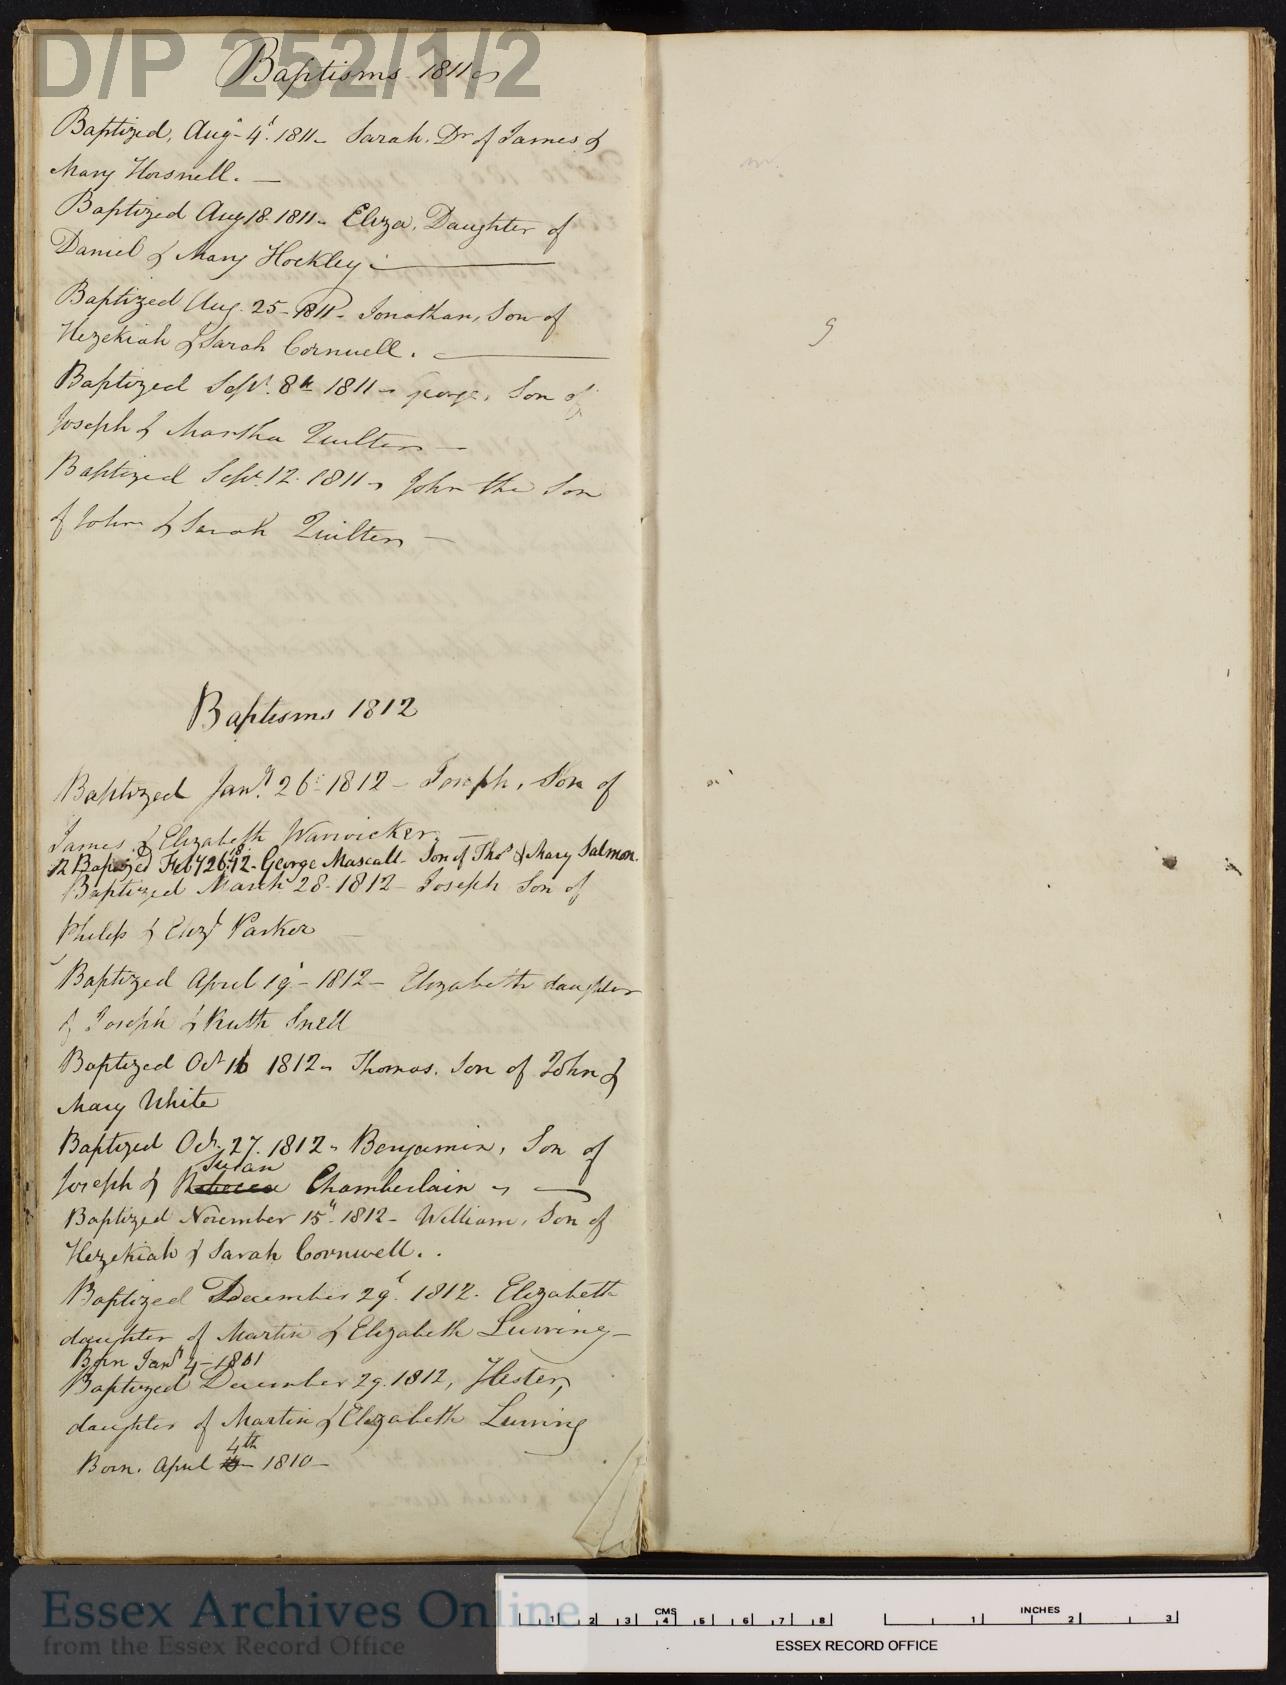 D/P 252/1/2
Baptisms 1811
Baptized, Augst 4th. 1811 - Sarah. Dr of James &
Mary Horsnell. -
Baptized Aug 18. 1811 - Eliza, Daughter of
Daniel & Mary Hockley.
Baptized Aug. 25 - 1811 - Jonathan, Son of
Hezekiah & Sarah Cornwell.
Baptized Sept. 8th 1811 - George, Son of
Joseph & Martha Quilter -
Baptized Sept. 12. 1811 - John the Son
of John & Sarah Quilter -
Baptisms 1812
Baptized Jany. 26 1812 - Joseph, Son of
James & Elizabeth Warwicker. -
Baptized Feby 26 1812 - George Mascall - Son of Thos & Mary Salmon.
Baptized March 28. 1812 - Joseph Son of
Philip & Elizth Parker -
Baptized April 19 - 1812 - Elizabeth daughter
of Joseph & Ruth Snell
Baptized Oct 16 1812 - Thomas. Son of John &
Mary White
Baptized Oct. 27. 1812 - Benjamin, Son of
Susan
Joseph & Rebecca Chamberlain -
Baptized November 15th. 1812 - William, Son of
Hezekiah & Sarah Cornwell.
Baptized December 29th. 1812. Elizabeth
daughter of Martin & Elizabeth Luving -
Born Jany 4 - 1801
Baptized December 29. 1812, Hester,
daughter of Martin & Elizabeth Luving
4th
Born. April 1810 -
Essex Archives Online
from the Essex Record Office
CMS
1 2 3 4 5 6 7 8
INCHES
1 2 3
ESSEX RECORD OFFICE